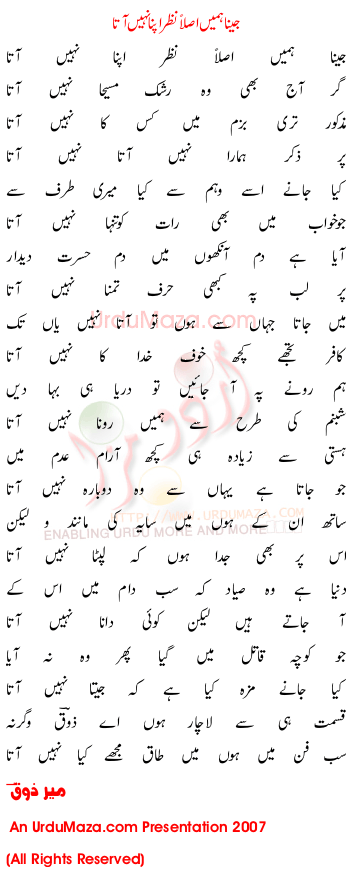 جینا ہمیں اصلاً نظر اپنا نہیں آتا
جینا ہمیں اصلاً نظر اپنا نہیں آتا
گر آج بھی وہ رشک مسیحا نہیں آتا
مذکور تری بزم میں کس کا نہیں آتا
پر ذکر ہمارا نہیں آتا نہیں آتا
کیا جانے اسے وہم سے کیا میری طرف سے
جوخواب میں بھی رات کوتنہا نہیں آتا
آیا ہے دم آنکھوں میں دم حسرت دیدار
پر لب پہ کبھی حرف تمنا نہیں آتا
میں جاتا جہاں سے ہوں تو آتا نہیں یاں تک
کافر تجھے کچھ خوف خدا کا نہیں آتا
ہم رونے پہ آ جائیں تو دریا ہی بہا دیں
شبنم کی طرح سے ہمیں رونا نہیں آتا
ہستی سے زیادہ ہی کچھ آرام عدم میں
جو جاتا ہے یہاں سے وہ دوبارہ نہیں آتا
ساتھ ان کے ہوں میں سایہ کی مانند و لیکن
اس پر بھی جدا ہوں کہ لپٹا نہیں آتا
دنیا ہے وہ صیاد کہ سب دام میں اس کے
آ جاتے ہیں لیکن کوئی دانا نہیں آتا
جو کوچہ قاتل میں گیا پھر وہ نہ آیا
کیا جانے مزہ کیا ہے کہ جیتا نہیں آتا
قسمت ہی سے لاچار ہوں اے ذوقؔ وگرنہ
سب فن میں ہوں میں طاق مجھے کیا نہیں آتا
میر ذوقؔ
An UrduMaza.com Presentation 2007
(All Rights Reserved)
UrduMaza.com
اردو مزا
HTTP://WWW.URDUMAZA.COM
ENABLING URDU MORE AND MORE